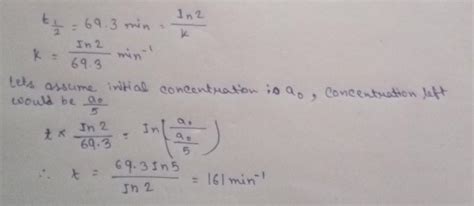 t_{1/2} = 69.3 min = In 2 / k
k = In 2 / 69.3 min⁻¹
Lets assume initial concentration is a₀, concentration left
would be a₀/5
t × In 2 / 69.3 = In (a₀ / (a₀/5))
∴ t = 69.3 In 5 / In 2 = 161 min⁻¹